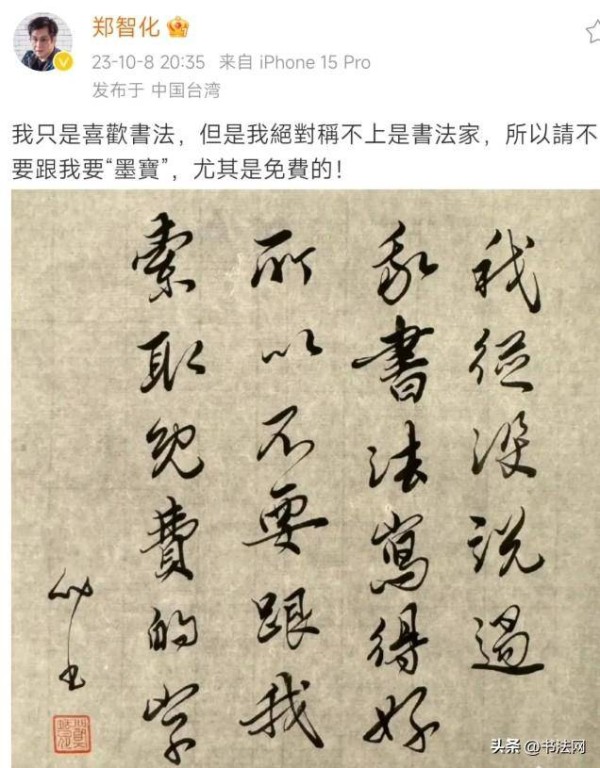 郑智化
23-10-8 20:35 来自 iPhone 15 Pro
发布于 中国台湾
我只是喜歡書法，但是我絕對稱不上是書法家，所以請不
要跟我要“墨寶”，尤其是免費的！
我從沒说過
我書法寫得好
所以不要跟我
索取免費的字
头条 @书法网